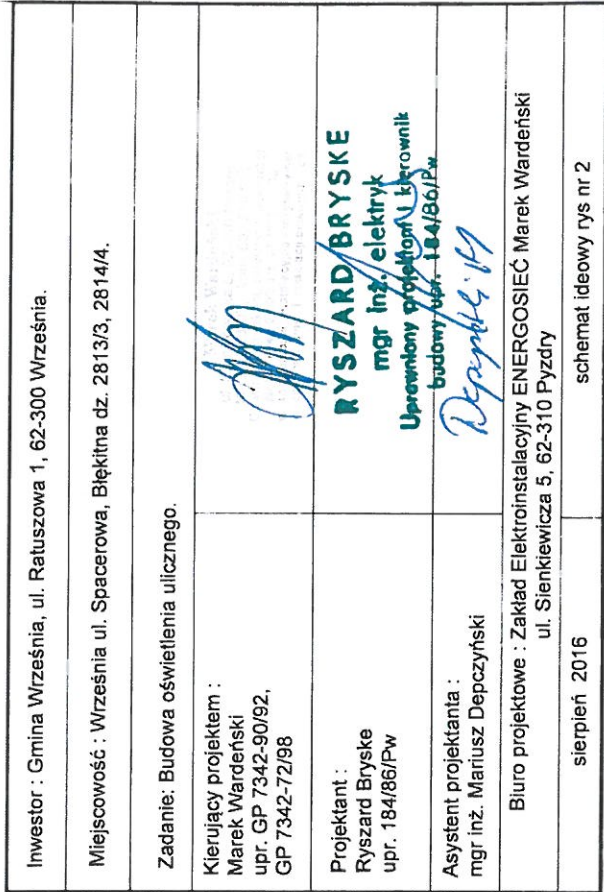 Inwestor : Gmina Września, ul. Ratuszowa 1, 62-300 Września.
Miejscowość : Września ul. Spacerowa, Błękitna dz. 2813/3, 2814/4.
Zadanie: Budowa oświetlenia ulicznego.
Kierujący projektem :
Marek Wardeński
upr. GP 7342-90/92,
GP 7342-72/98
Projektant :
Ryszard Bryske
upr. 184/86/Pw
RYSZARD BRYSKE
mgr inż. elektryk
Uprawniony projektant i kierownik
budowy upr. 184/86/Pw
Asystent projektanta :
mgr inż. Mariusz Depczyński
Biuro projektowe : Zakład Elektroinstalacyjny ENERGOSIEĆ Marek Wardeński
ul. Sienkiewicza 5, 62-310 Pyzdry
sierpień 2016
schemat ideowy rys nr 2